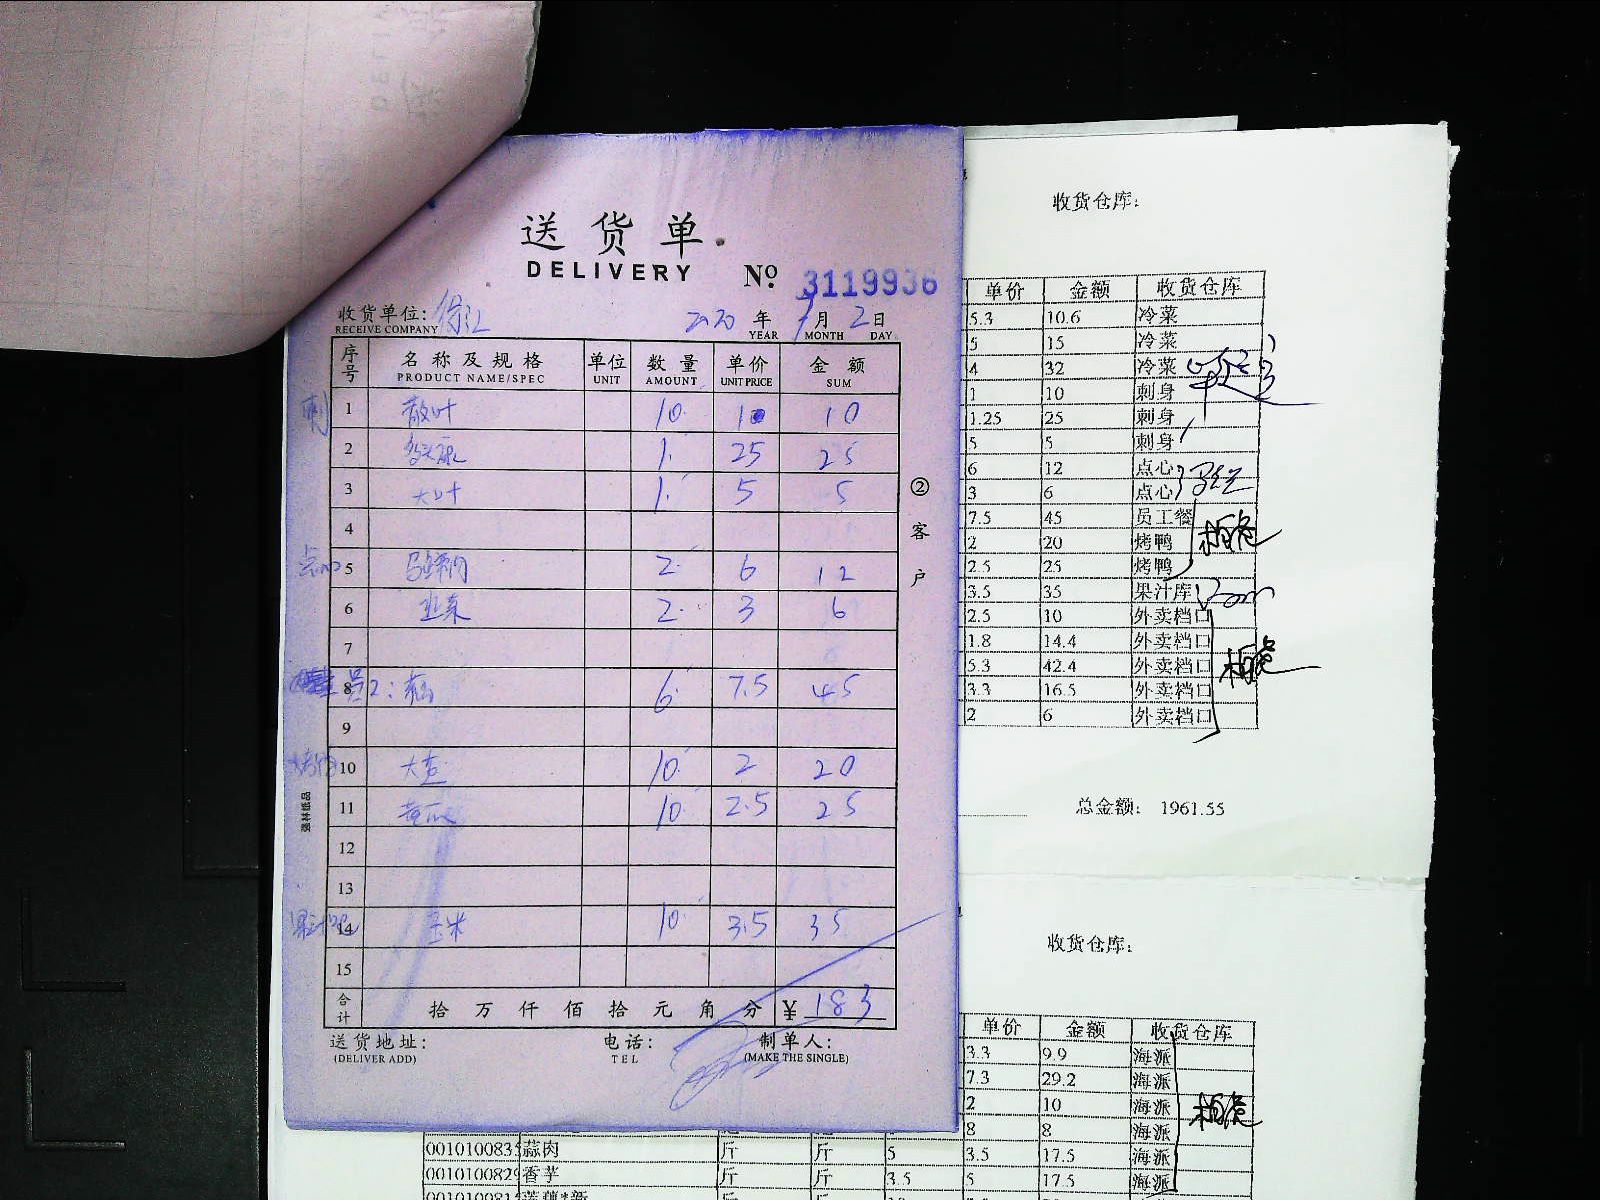 送货单
DELIVERY
№ 3119936
收货单位: 徐汇 2020 年 9 月 2 日
RECEIVE COMPANY YEAR MONTH DAY
序号 名称及规格 单位 数量 单价 金额
PRODUCT NAME/SPEC UNIT AMOUNT UNIT PRICE SUM
刺 1 苏叶 10 1 10
2 1 25 25
3 大叶 1 5 5
4
点心 5 2 6 12
6 韭菜 2 3 6
7
8 6 7.5 45
9
10 2 20
11 黄瓜 10 2.5 25
12
13
果汁吧 14 玉米 10 3.5 35
15
合计 拾 万 仟 佰 拾 元 角 分 ¥ 183
送货地址: 电话: 制单人:
(DELIVER ADD) TEL (MAKE THE SINGLE)
②客户
强林纸品
收货仓库:
单价 金额 收货仓库
5.3 10.6 冷菜
5 15 冷菜
4 32 冷菜
1 10 刺身
1.25 25 刺身
5 5 刺身
6 12 点心
3 6 点心
7.5 45 员工餐
2 20 烤鸭
2.5 25 烤鸭
3.5 35 果汁库
2.5 10 外卖档口
1.8 14.4 外卖档口
5.3 42.4 外卖档口
3.3 16.5 外卖档口
2 6 外卖档口
总金额: 1961.55
收货仓库:
单价 金额 收货仓库
3.3 9.9 海派
7.3 29.2 海派
2 10 海派
8 8 海派
001010083 蒜肉 斤 斤 5 3.5 17.5 海派
001010082 香芋 斤 斤 3.5 5 17.5 海派